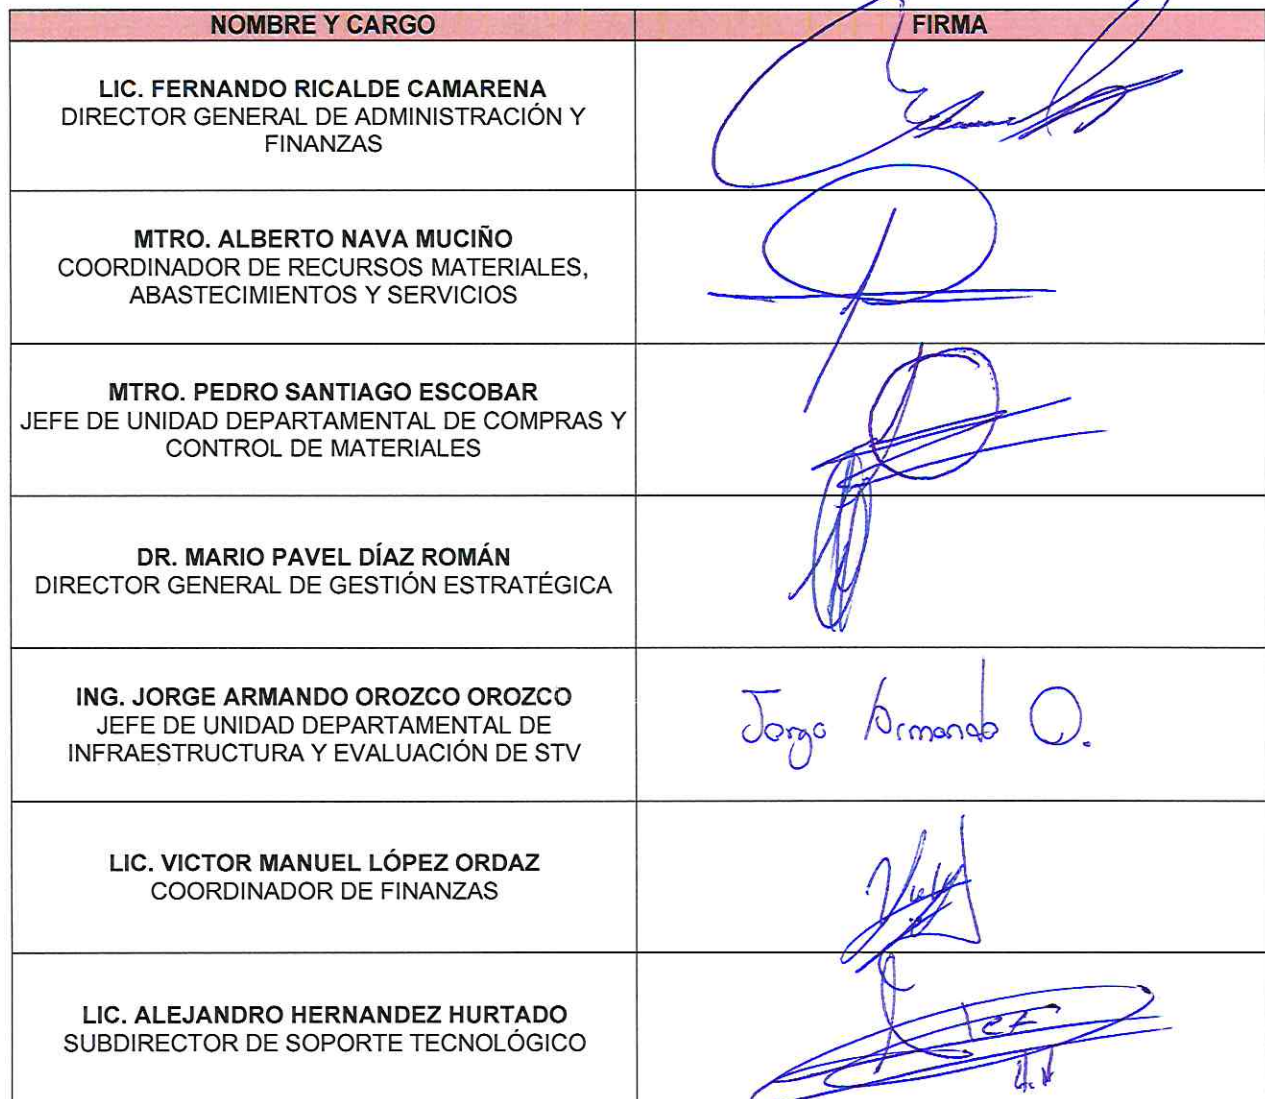 NOMBRE Y CARGO FIRMA
LIC. FERNANDO RICALDE CAMARENA
DIRECTOR GENERAL DE ADMINISTRACIÓN Y
FINANZAS
MTRO. ALBERTO NAVA MUCIÑO
COORDINADOR DE RECURSOS MATERIALES,
ABASTECIMIENTOS Y SERVICIOS
MTRO. PEDRO SANTIAGO ESCOBAR
JEFE DE UNIDAD DEPARTAMENTAL DE COMPRAS Y
CONTROL DE MATERIALES
DR. MARIO PAVEL DÍAZ ROMÁN
DIRECTOR GENERAL DE GESTIÓN ESTRATÉGICA
ING. JORGE ARMANDO OROZCO OROZCO
JEFE DE UNIDAD DEPARTAMENTAL DE
INFRAESTRUCTURA Y EVALUACIÓN DE STV
Jorge Armando O.
LIC. VICTOR MANUEL LÓPEZ ORDAZ
COORDINADOR DE FINANZAS
LIC. ALEJANDRO HERNANDEZ HURTADO
SUBDIRECTOR DE SOPORTE TECNOLÓGICO